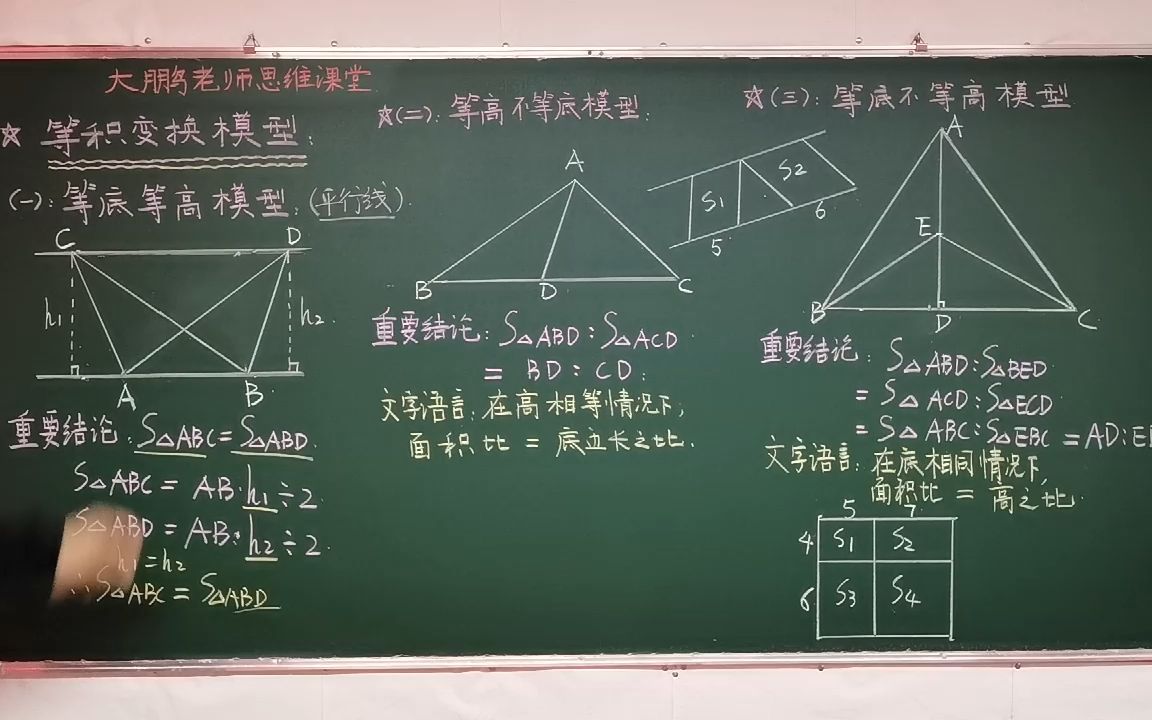 大鹏老师思维课堂
☆ 等积变换模型:
(一): 等底等高模型: (平行线).
C D
h₁ h₂
A B
重要结论: S△ABC = S△ABD.
S△ABC = AB·h₁÷2
S△ABD = AB·h₂÷2.
h₁=h₂
∴S△ABC = S△ABD
☆(二): 等高不等底模型:
A
B D C
重要结论: S△ABD : S△ACD
= BD : CD.
文字语言: 在高相等情况下,
面积比 = 底边长之比.
S1 S2
5 6
☆(三): 等底不等高模型
A
E
B D C
重要结论: S△ABD : S△BED
= S△ACD : S△ECD
= S△ABC : S△EBC = AD:E
文字语言: 在底相同情况下,
面积比 = 高之比.
5 7
4 S1 S2
6 S3 S4